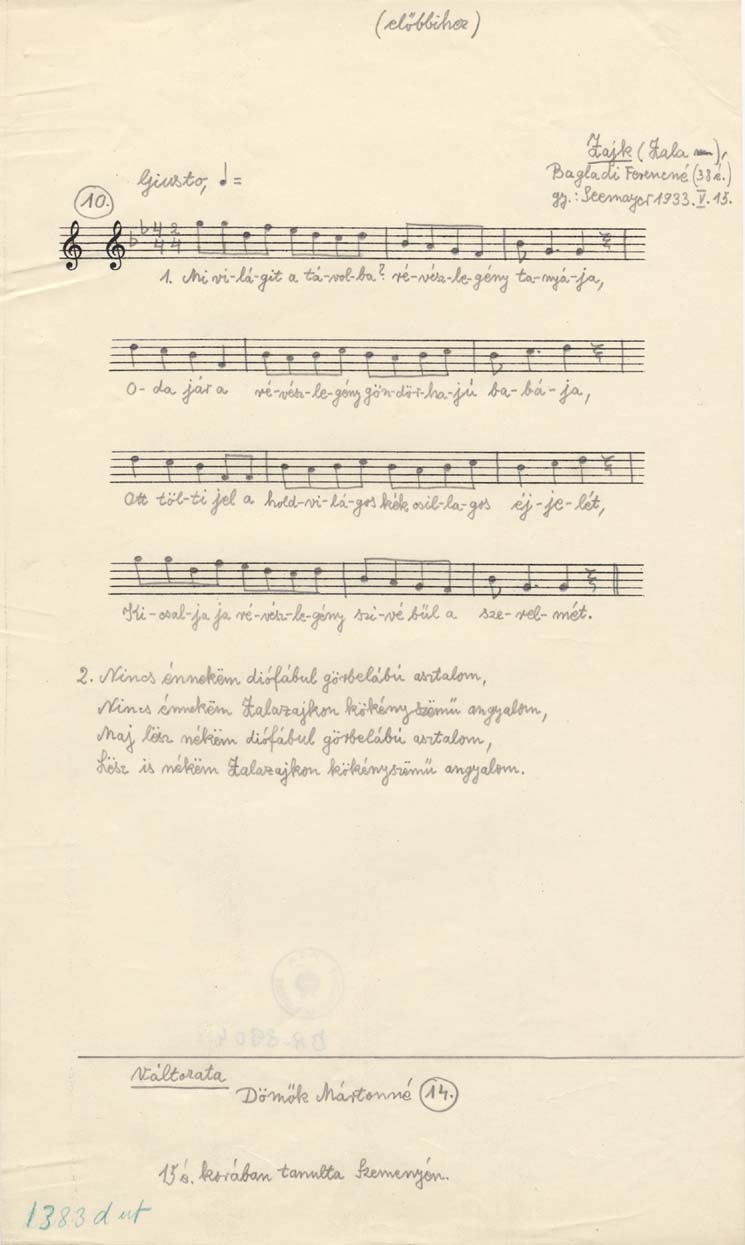 (előbbihez)
Zajk (Zala),
Bagladi Ferencné (38 é.)
gy.: Seemayer 1933. V. 15.
Giusto, ♩=
10.
4 2
4 4
1. Mi vi-lá-git a tá-vol-ba? ré-vész-le-gény ta-nyá-ja,
O-da jár a ré-vész-le-gény gön-dör-ha-jú ba-bá-ja,
Ott töl-ti jel a hold-vi-lá-gos kék csil-la-gos éj-je-lét,
Ki-csal-ja ja ré-vész-le-gény szi-vé bül a sze-rel-mét.
2. Nincs énnekëm diófábul görbelábú asztalom,
Nincs énnekëm Zalazajkon kökényszëmű angyalom,
Maj lësz nékëm diófábul görbelábú asztalom,
Lësz is nékëm Zalazajkon kökényszëmű angyalom.
Változata
Dömők Mártonné 14.
15 é. korában tanulta Szemenyén.
1383 d ut